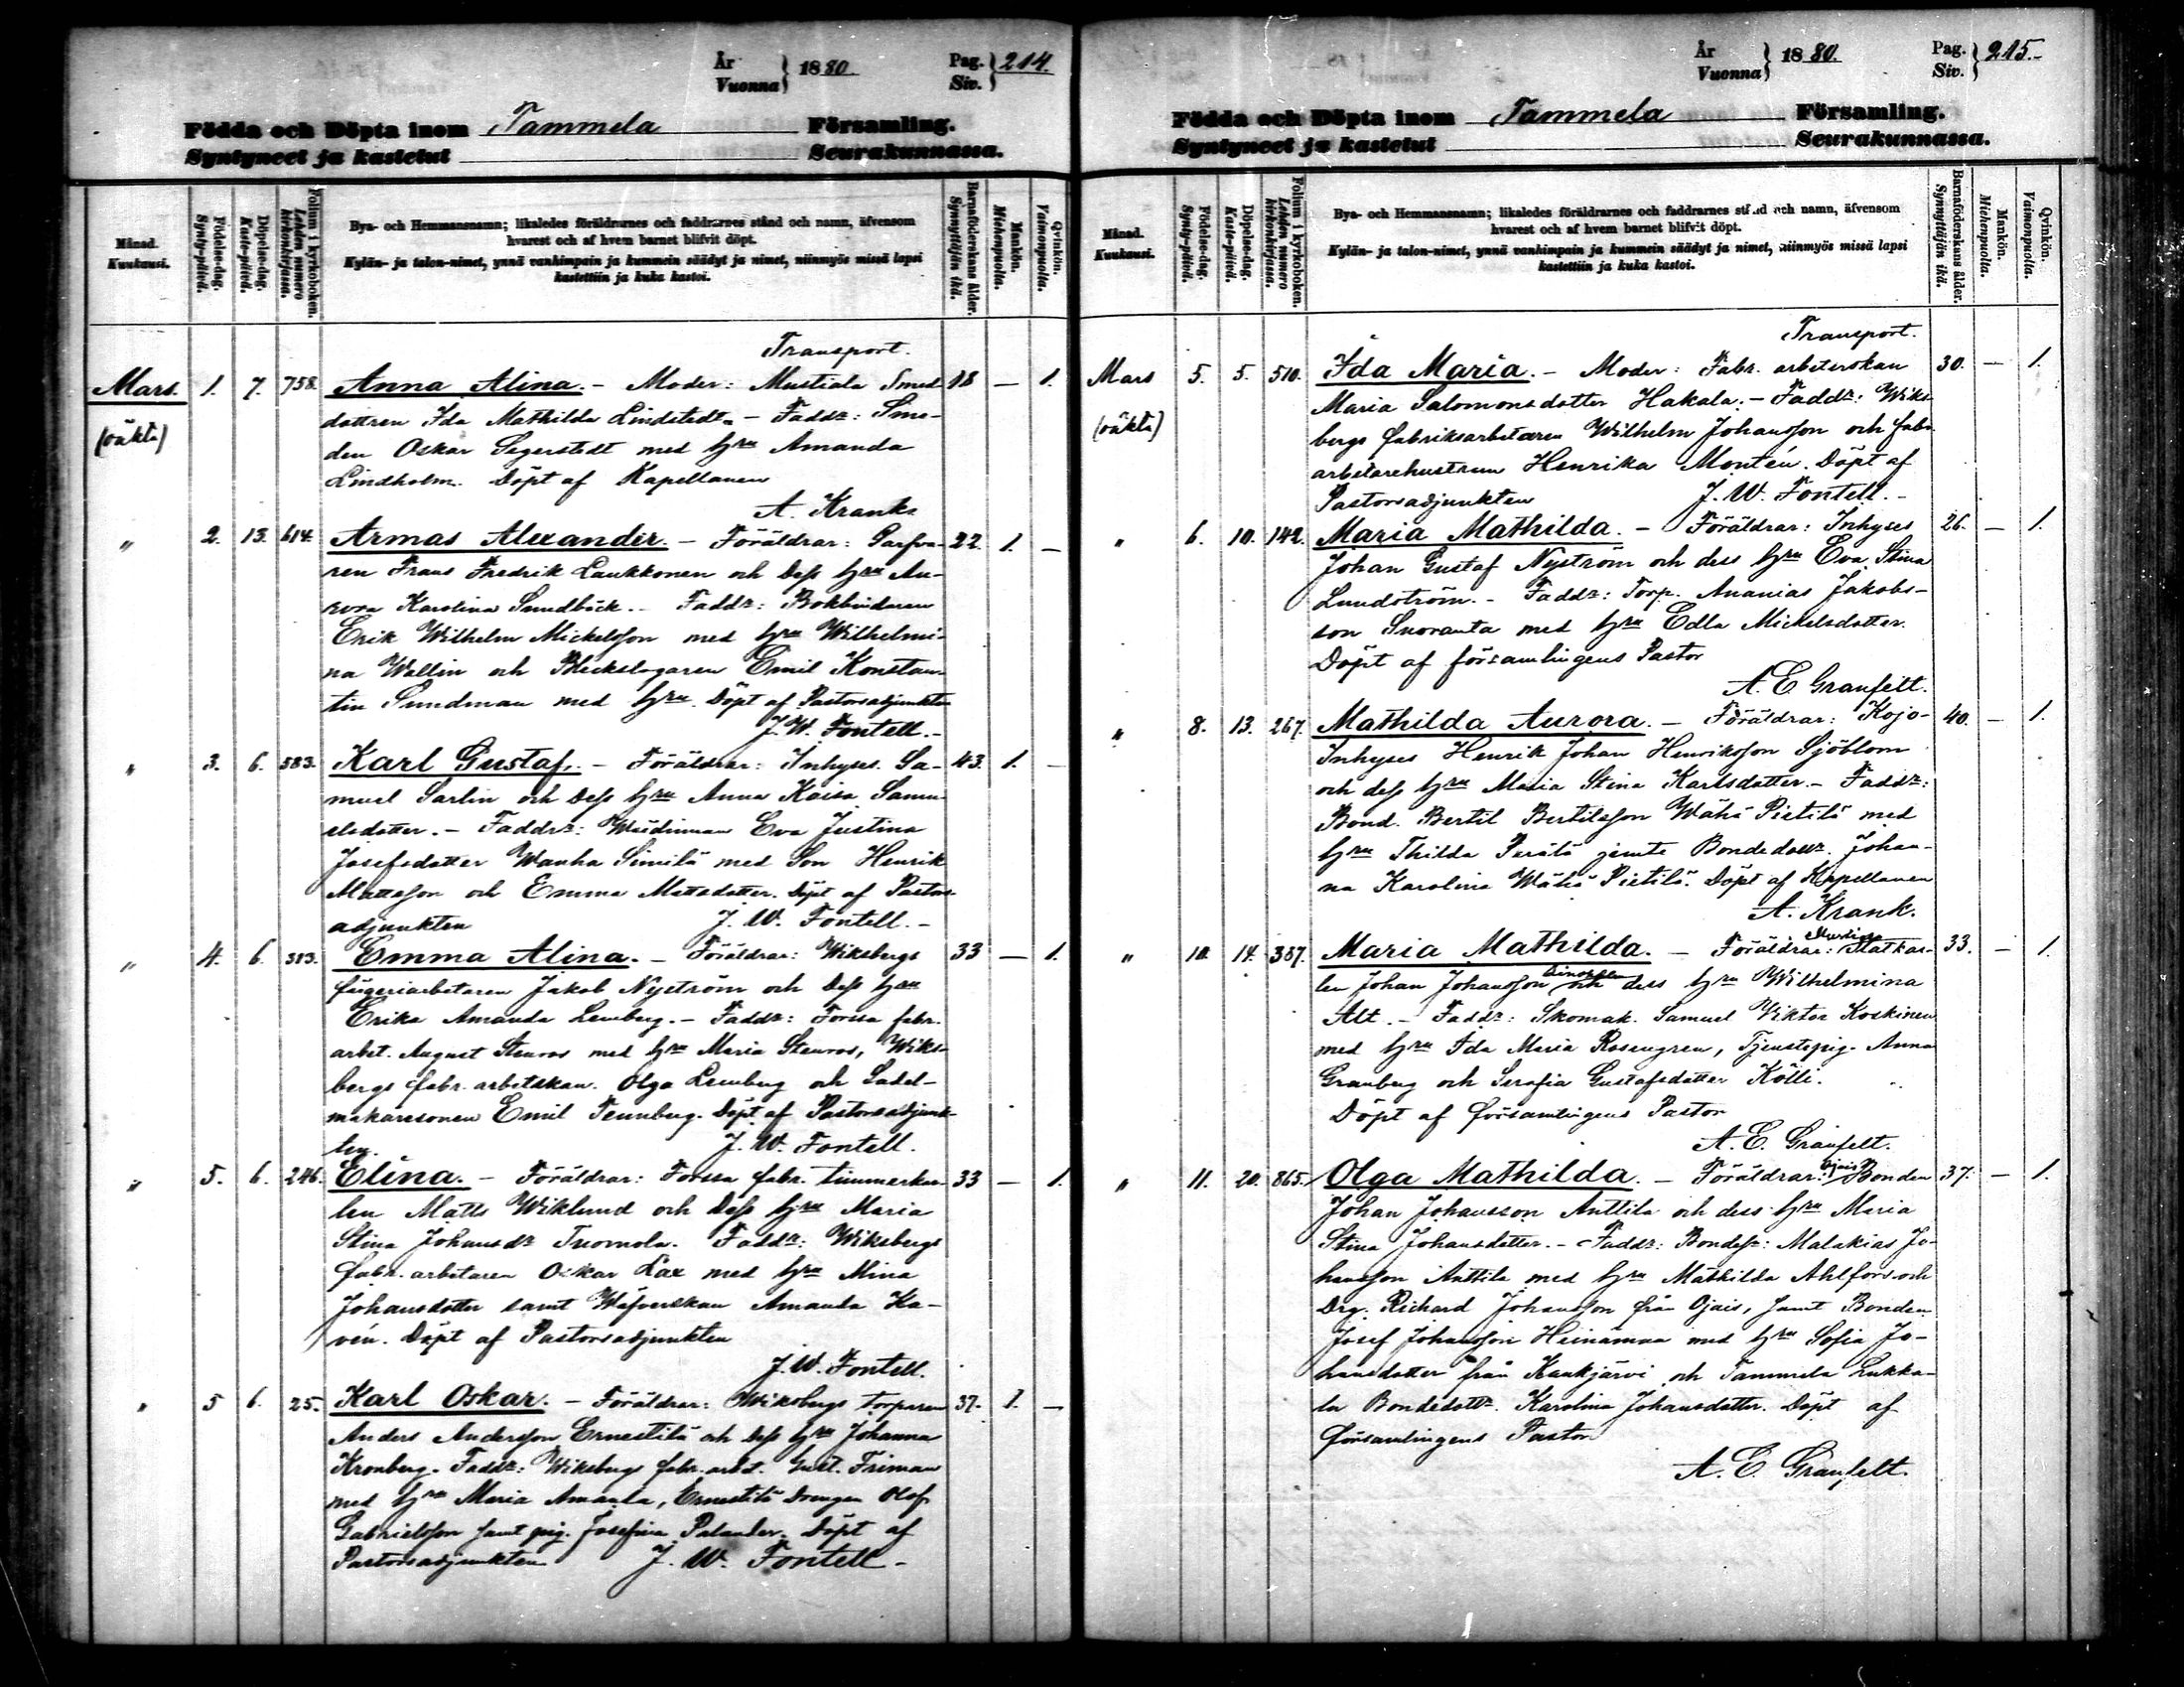 År
Vuonna } 1880. Pag.
Siv. } 214.
Födda och Döpta inom Tammela Församling.
Syntyneet ja kastetut Seurakunnassa.
Månad.
Kuukausi.
Födelse-dag.
Synty-päivä.
Döpelse-dag.
Kaste-päivä.
Folium i kyrkoboken.
Lehden numero
kirkonkirjassa.
Bya- och Hemmansnamn; likaledes föräldrarnes och faddrarnes stånd och namn, äfvensom
hvarest och af hvem barnet blifvit döpt.
Kylän- ja talon-nimet, ynnä vanhimpain ja kummein säädyt ja nimet, niinmyös missä lapsi
kastettiin ja kuka kastoi.
Barnaföderskans ålder.
Synnyttäjän ikä.
Mankön.
Miehenpuolta.
Qvinkön.
Vaimonpuolta.
Transport.
Mars. 1. 7. 758. Anna Alina. – Moder: Mustiala Smed- 18 — 1.
(oäkta) dottren Ida Mathilda Lindstedt. – Faddr: Sme-
den Oskar Segerstedt med hru Amanda
Lindholm. Döpt af Kapellanen
A. Krank.
" 2. 13. 614. Armas Alexander. – Föräldrar: Garfva- 22. 1. —
ren Frans Fredrik Laukkonen och dess hru Au-
rora Karolina Sundbäck. – Faddr: Bokbindaren
Erik Wilhelm Mickelsson med hru Wilhelmi-
na Wallin och Bleckslagaren Emil Konstan-
tin Sundman med hru. Döpt af Pastorsadjunkten
J. W. Fontell. –
" 3. 6. 583. Karl Gustaf. – Föräldrar: Inhyses. Sa- 43. 1. —
muel Sarlin och dess hru Anna Kaisa Samu-
elsdotter. – Faddrr: Wärdinnan Eva Justina
Josefsdotter Wanha Similä med Son Henrik
Mattsson och Emma Mattsdotter. Döpt af Pastors-
adjunkten J. W. Fontell. –
" 4. 6. 313. Emma Alina. – Föräldrar: Wiksbergs 33 — 1.
färgeriarbetaren Jakob Nyström och dess hru
Erika Amanda Lemberg. – Faddr: Forssa fabr.
arbet. August Stenros med hru Maria Stenros, Wiks-
bergs fabr. arbetskan. Olga Lemberg och Sadel-
makaresonen Emil Tennberg. Döpt af Pastorsadjunk-
ten. J. W. Fontell.
" 5. 6. 246. Elina. – Föräldrar: Forssa fabr. timmerkar- 33 — 1.
len Matts Wiklund och dess hru Maria
Stina Johansdr Tuomola. Faddr: Wiksbergs
fabr. arbetaren Oskar Lax med hru Mina
Johansdotter samt Wäfverskan Amanda Ka-
vén. Döpt af Pastorsadjunkten
J. W. Fontell.
" 5 6. 25. Karl Oskar. – Föräldrar: Wiksbergs torparen 37. 1. —
Anders Andersson Ernestilä och dess hru Johanna
Kronberg. Faddr: Wiksbergs fabr. arbt. Gust. Friman
med hru Maria Amanda, Ernestilä Drengen Olof
Gabrielsson samt pig. Josefina Palander. Döpt af
Pastorsadjunkten J. W. Fontell –
År
Vuonna } 1880. Pag.
Siv. } 215.–
Födda och Döpta inom Tammela Församling.
Syntyneet ja kastetut Seurakunnassa.
Månad.
Kuukausi.
Födelse-dag.
Synty-päivä.
Döpelse-dag.
Kaste-päivä.
Folium i kyrkoboken.
Lehden numero
kirkonkirjassa.
Bya- och Hemmansnamn; likaledes föräldrarnes och faddrarnes stånd och namn, äfvensom
hvarest och af hvem barnet blifvit döpt.
Kylän- ja talon-nimet, ynnä vanhimpain ja kummein säädyt ja nimet, niinmyös missä lapsi
kastettiin ja kuka kastoi.
Barnaföderskans ålder.
Synnyttäjän ikä.
Mankön.
Miehenpuolta.
Qvinkön.
Vaimonpuolta.
Transport.
Mars 5. 5. 510. Ida Maria. – Moder: Fabr. arbeterskan 30. — 1.
(oäkta) Maria Salomonsdotter Hakala. – Faddr: Wiks-
bergs fabriksarbetaren Wilhelm Johansson och fabr.
arbetarehustrun Henrika Montén. Döpt af
Pastorsadjunkten J. W. Fontell. –
" 6. 10. 142. Maria Mathilda. – Föräldrar: Inhyses 26. — 1.
Johan Gustaf Nyström och dess hru Eva Stina
Lundström. – Faddr: Torp. Ananias Jakobs-
son Suoranta med hru Edla Mickelsdotter.
Döpt af församlingens Pastor
A. E. Granfelt.
" 8. 13. 267. Mathilda Aurora. – Föräldrar: Kojo- 40. — 1.
Inhyses Henrik Johan Henriksson Sjöblom
och dess hru Maria Stina Karlsdotter. – Faddr:
Bond. Bertil Bertilsson Wähä Pietilä med
hru Thilda Perätä jemte Bondedottr. Johan-
na Karolina Wähä Pietilä. Döpt af Kapellanen
A. Krank.
" 10. 14. 337. Maria Mathilda. – Föräldrar: Mustiala Statkar- 33. — 1.
len Johan Johansson och dess hru Wilhelmina
Alt. – Faddr: Skomak. Samuel Viktor Koskinen
med hru Ida Maria Rosengren, Tjenstepig. Anna
Granberg och Serafia Gustafsdotter Kölli.
Döpt af församlingens Pastor
A. E. Granfelt.
" 11. 20. 865. Olga Mathilda. – Föräldrar: Ojais Bonden 37. — 1.
Johan Johansson Anttila och dess hru Maria
Stina Johansdotter. – Faddr: Bondes: Malakias Jo-
hansson Anttila med hru Mathilda Ahlfors och
Drg. Richard Johansson från Ojais, samt Bonden
Josef Johansson Heinämaa med hru Sofia Jo-
hansdotter från Kaukjärvi och Tammela Lukka-
la Bondedottr. Karolina Johansdotter. Döpt af
församlingens Pastor
A. E. Granfelt.